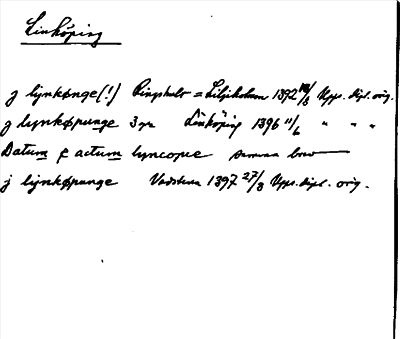 Linköping
j lynkønge (!) Ringshult = Liljeholmen 1392 18/8 Upps. dipl. orig.
j lynkøpunge 3 gr Linköping 1396 11/6 " " "
Datum & actum lyncopie samma brev
j lijnkøpunge Vadstena 1397 27/8 Upps. dipl. orig.